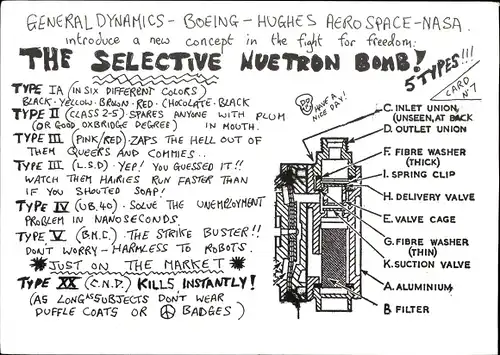 GENERAL DYNAMICS - BOEING - HUGHES AEROSPACE - NASA.
introduce a new concept in the fight for freedom:
THE SELECTIVE NUETRON BOMB!
5 TYPES!!!
CARD Nº7
TYPE IA (IN SIX DIFFERENT COLORS)
BLACK · YELLOW · BROWN · RED · CHOCOLATE · BLACK
TYPE II (CLASS 2-5) · SPARES ANYONE WITH PLUM
(OR GOOD OXBRIDGE DEGREE) IN MOUTH.
TYPE III (PINK/RED) · ZAPS THE HELL OUT OF
THEM QUEERS AND COMMIES..
TYPE III (L.S.D) · YEP! YOU GUESSED IT!!
WATCH THEM HAIRIES RUN FASTER THAN
IF YOU SHOUTED SOAP!
TYPE IV (U.B.40) · SOLVE THE UNEMPLOYMENT
PROBLEM IN NANOSECONDS.
TYPE V (B.M.C.) THE STRIKE BUSTER!!
DON'T WORRY - HARMLESS TO ROBOTS.
JUST ON THE MARKET
TYPE XX (C.N.D.) KILLS, INSTANTLY!
(AS LONG AS SUBJECTS DON'T WEAR
DUFFLE COATS OR ☮ BADGES)
HAVE A NICE DAY!
C. INLET UNION,
(UNSEEN, AT BACK)
D. OUTLET UNION
F. FIBRE WASHER
(THICK)
I. SPRING CLIP
H. DELIVERY VALVE
E. VALVE CAGE
G. FIBRE WASHER
(THIN)
K. SUCTION VALVE
A. ALUMINIUM
B FILTER